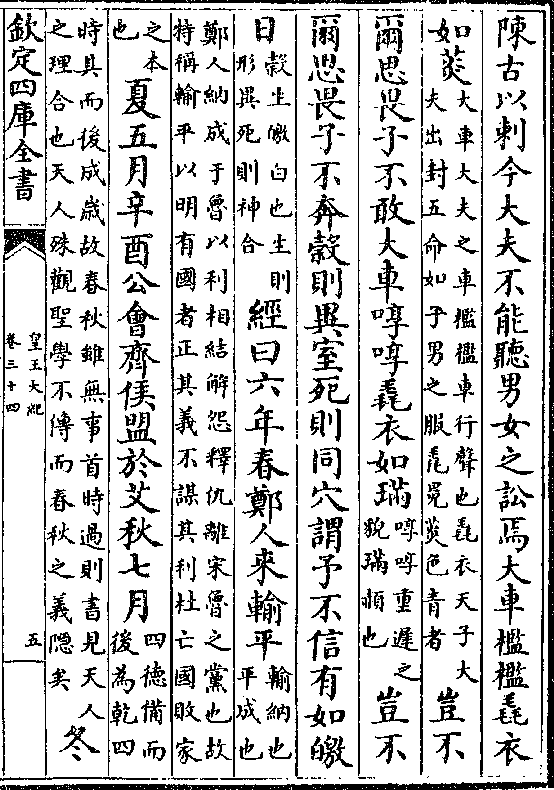 陳古以刺今大夫不能聽男女之訟焉大車檻檻毳衣
如菼大車大夫之車檻檻車行聲也毳衣天子大夫出封五命如子男之服毳冕菼色青者豈不
爾思畏子不敢大車啍啍毳衣如璊啍啍重遲之貌璊赬也豈不
爾思畏子不奔穀則異室死則同穴謂予不信有如皦
日穀生皦白也生則形異死則神合經曰六年春鄭人來輸平輸納也平成也
鄭人納成于魯以利相結解怨釋仇離宋魯之黨也故特稱輸平以明有國者正其義不謀其利杜亡國敗家
之本也夏五月辛酉公會齊侯盟於艾秋七月四德備而後為乾四
時具而後成嵗故春秋雖無事首時過則書見天人之理合也天人殊觀聖學不傳而春秋之義隠矣冬
欽定四庫全書
皇王大紀
卷三十四
五